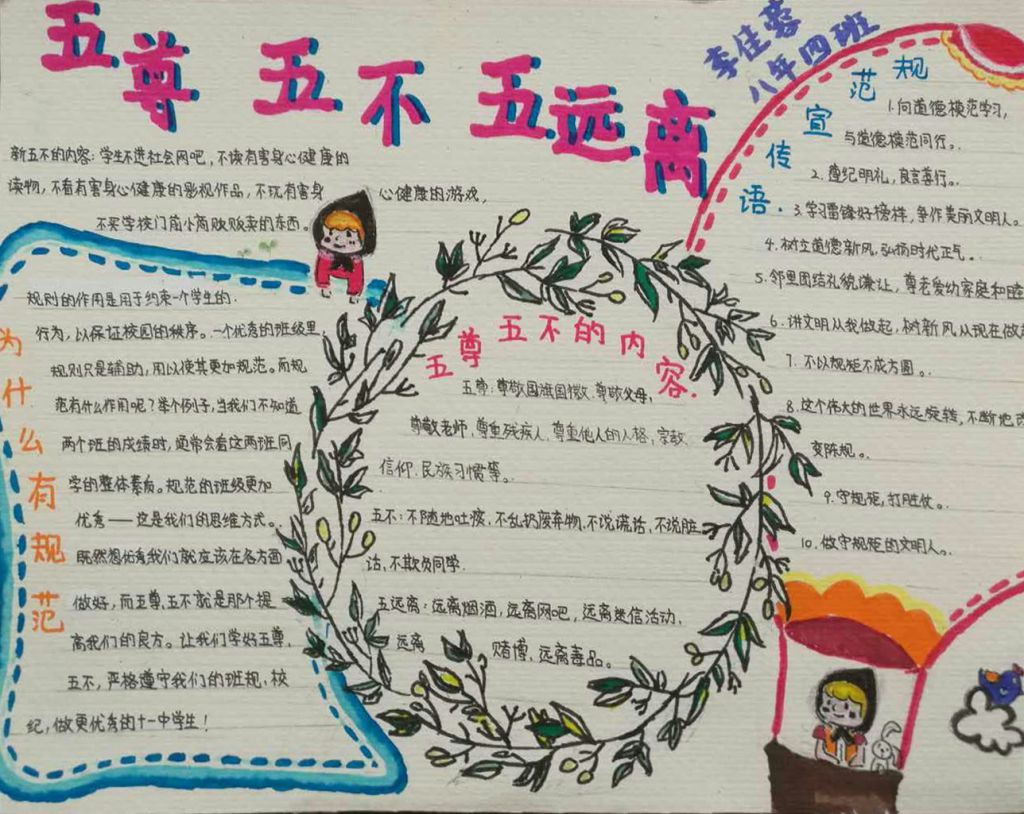 五尊 五不 五远离
李佳蓉
八年四班
新五不的内容：学生不进社会网吧，不读有害身心健康的
读物，不看有害身心健康的影视作品，不玩有害身心健康的游戏，
不买学校门前小商贩贩卖的东西。
为什么有规范
规则的作用是用于约束一个学生的
行为，以保证校园的秩序。一个优秀的班级里
规则只是辅助，用以使其更加规范。而规
范有什么作用呢？举个例子，当我们不知道
两个班的成绩时，通常会看这两班同
学的整体素质。规范的班级更加
优秀——这是我们的思维方式。
既然想优秀我们就应该在各方面
做好，而五尊，五不就是那个提
高我们的良方。让我们学好五尊，
五不，严格遵守我们的班规，校
纪，做更优秀的十一中学生！
五尊五不的内容
五尊：尊敬国旗国徽．尊敬父母，
尊敬老师，尊重残疾人，尊重他人的人格，宗教
信仰．民族习惯等。
五不：不随地吐痰，不乱扔废弃物，不说谎话，不说脏
话，不欺负同学．
五远离：远离烟酒，远离网吧，远离迷信活动，
远离赌博，远离毒品。
规范宣传语．
1.向道德模范学习，
与道德模范同行。
2.遵纪明礼，良言善行。
3.学习雷锋好榜样，争作美丽文明人。
4.树立道德新风，弘扬时代正气。
5.邻里团结礼貌谦让，尊老爱幼家庭和睦
6.讲文明从我做起，树新风从现在做起
7.不以规矩不成方圆。
8.这个伟大的世界永远旋转，不断地改
变陈规。
9.守规矩，打胜仗。
10.做守规矩的文明人。